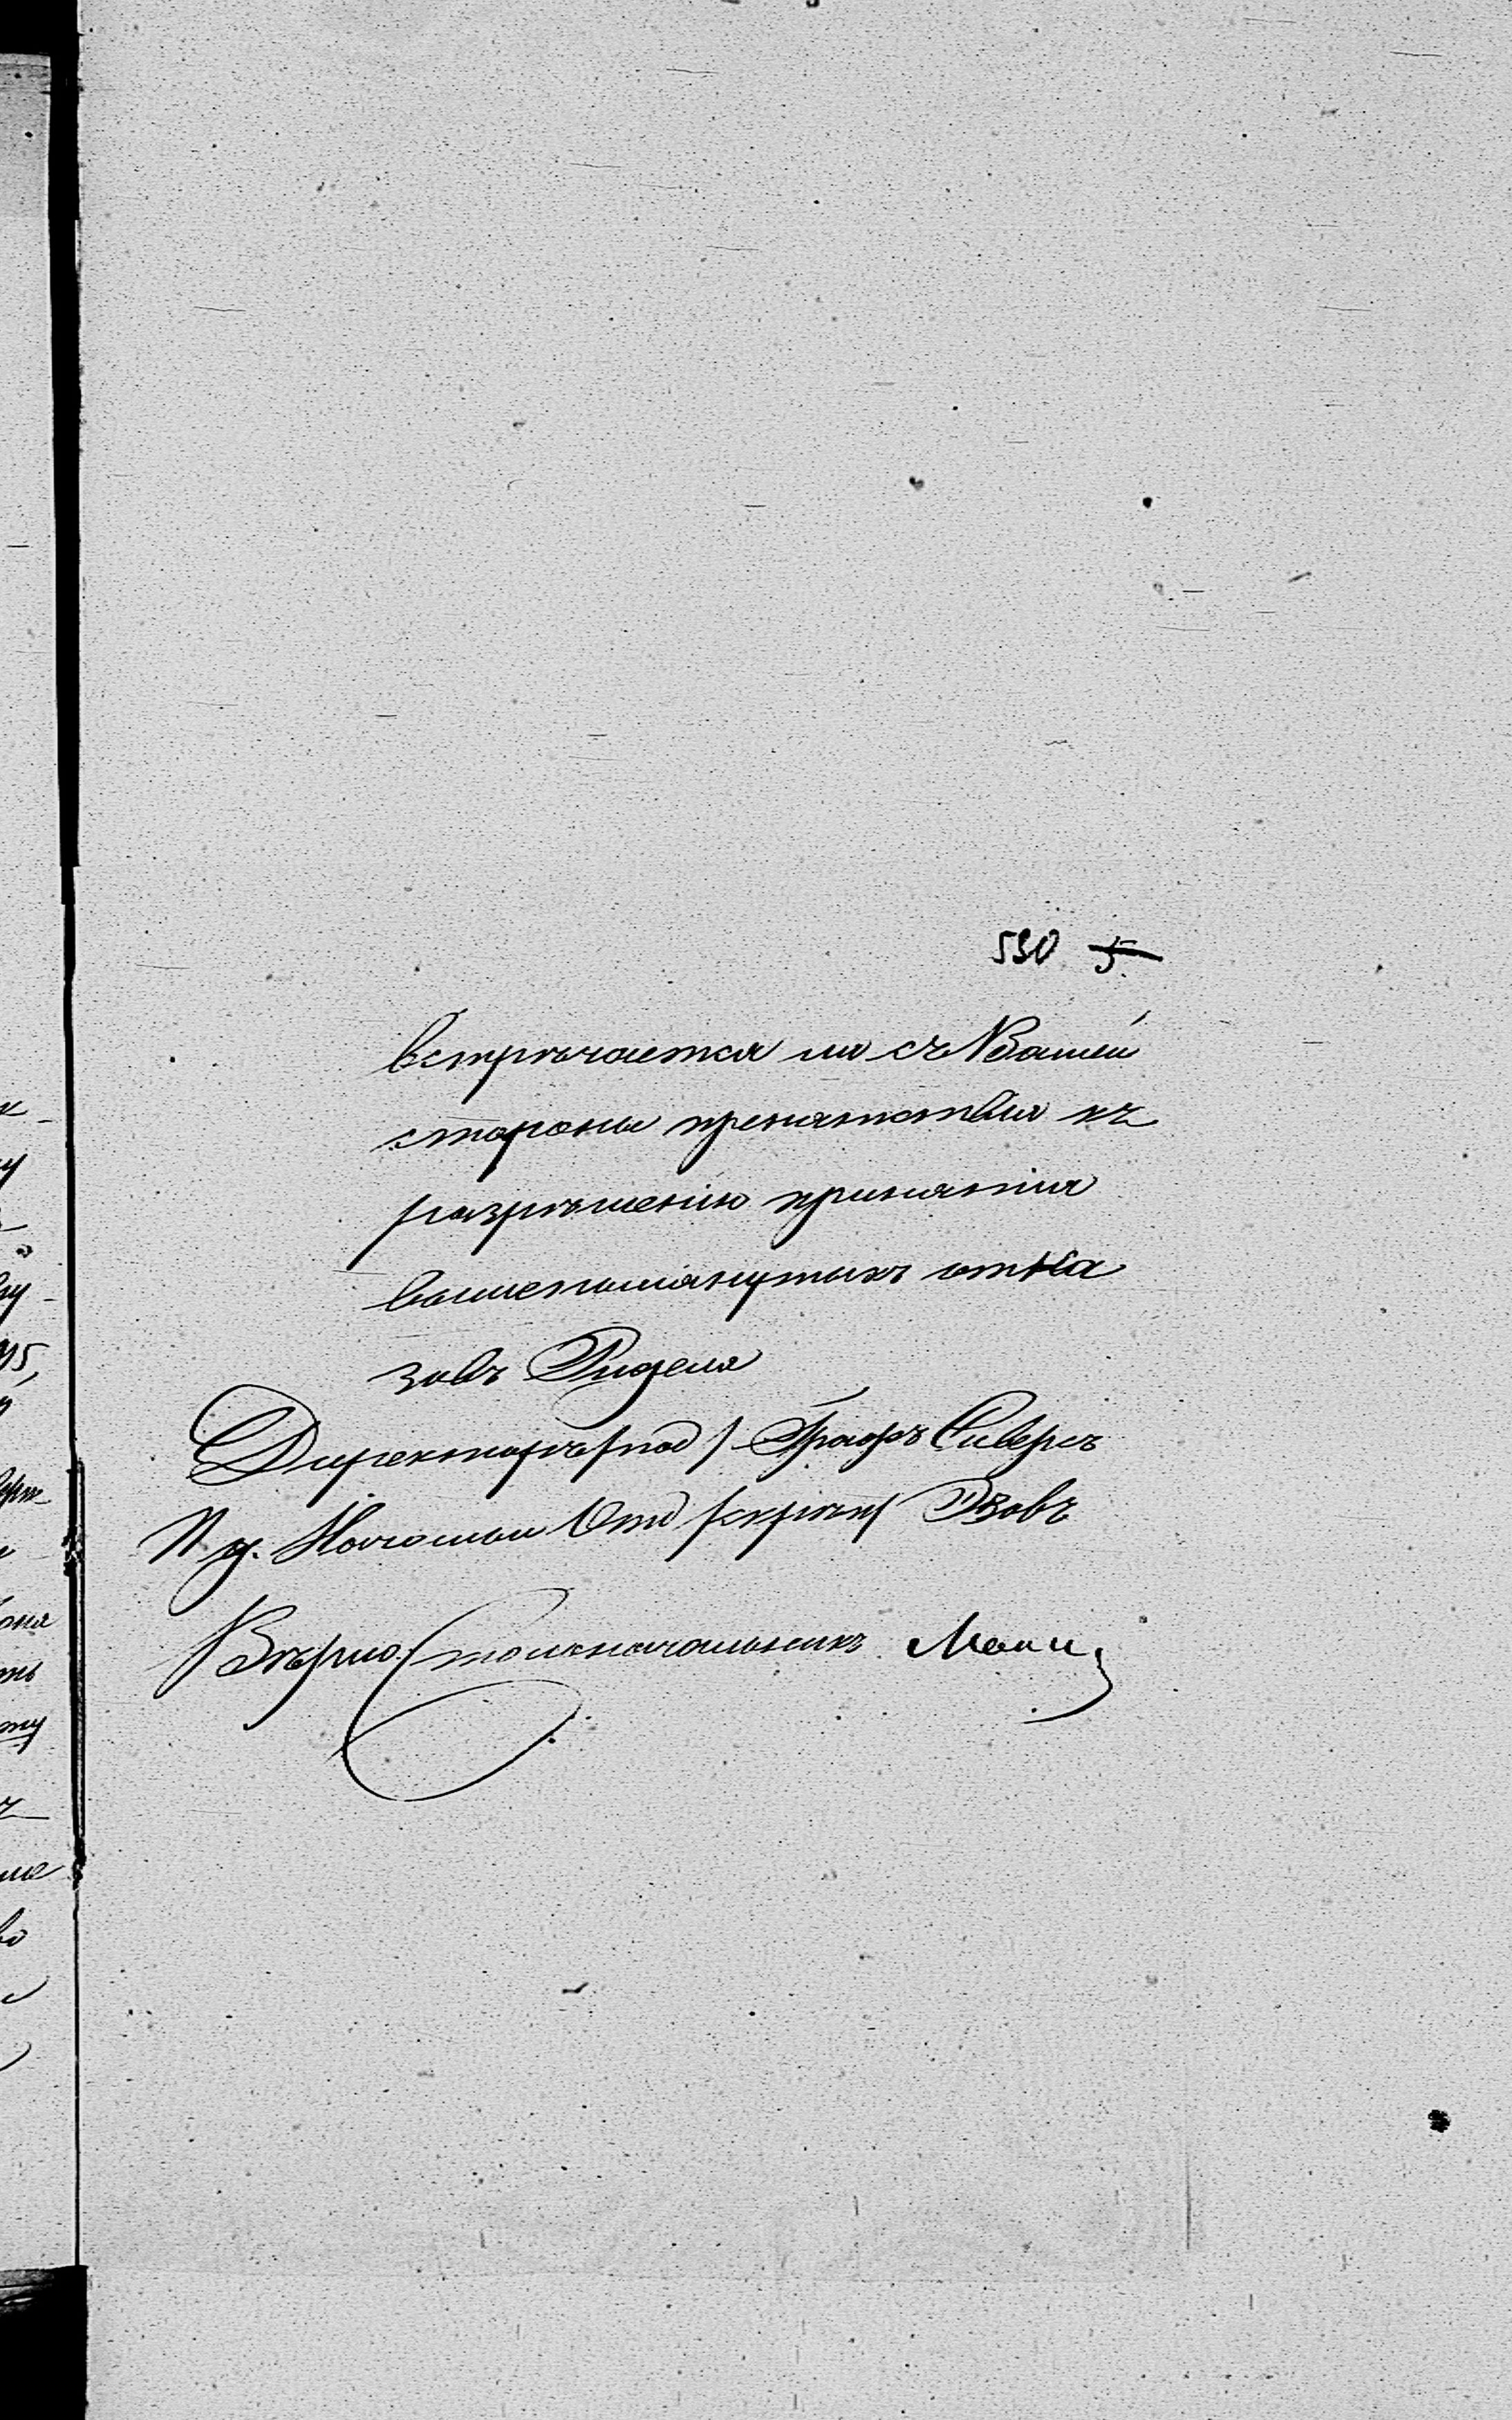 530 5
встрѣчается ли съ Вашей
стороны препятствія къ
разрѣшенію принятія
вышепомянутыхъ отка
зовъ Риделя
Директоръ /под/ Графъ Сиверсъ
И д. Начальн Отд /скрѣп/
Вѣрно: Столоначальникъ